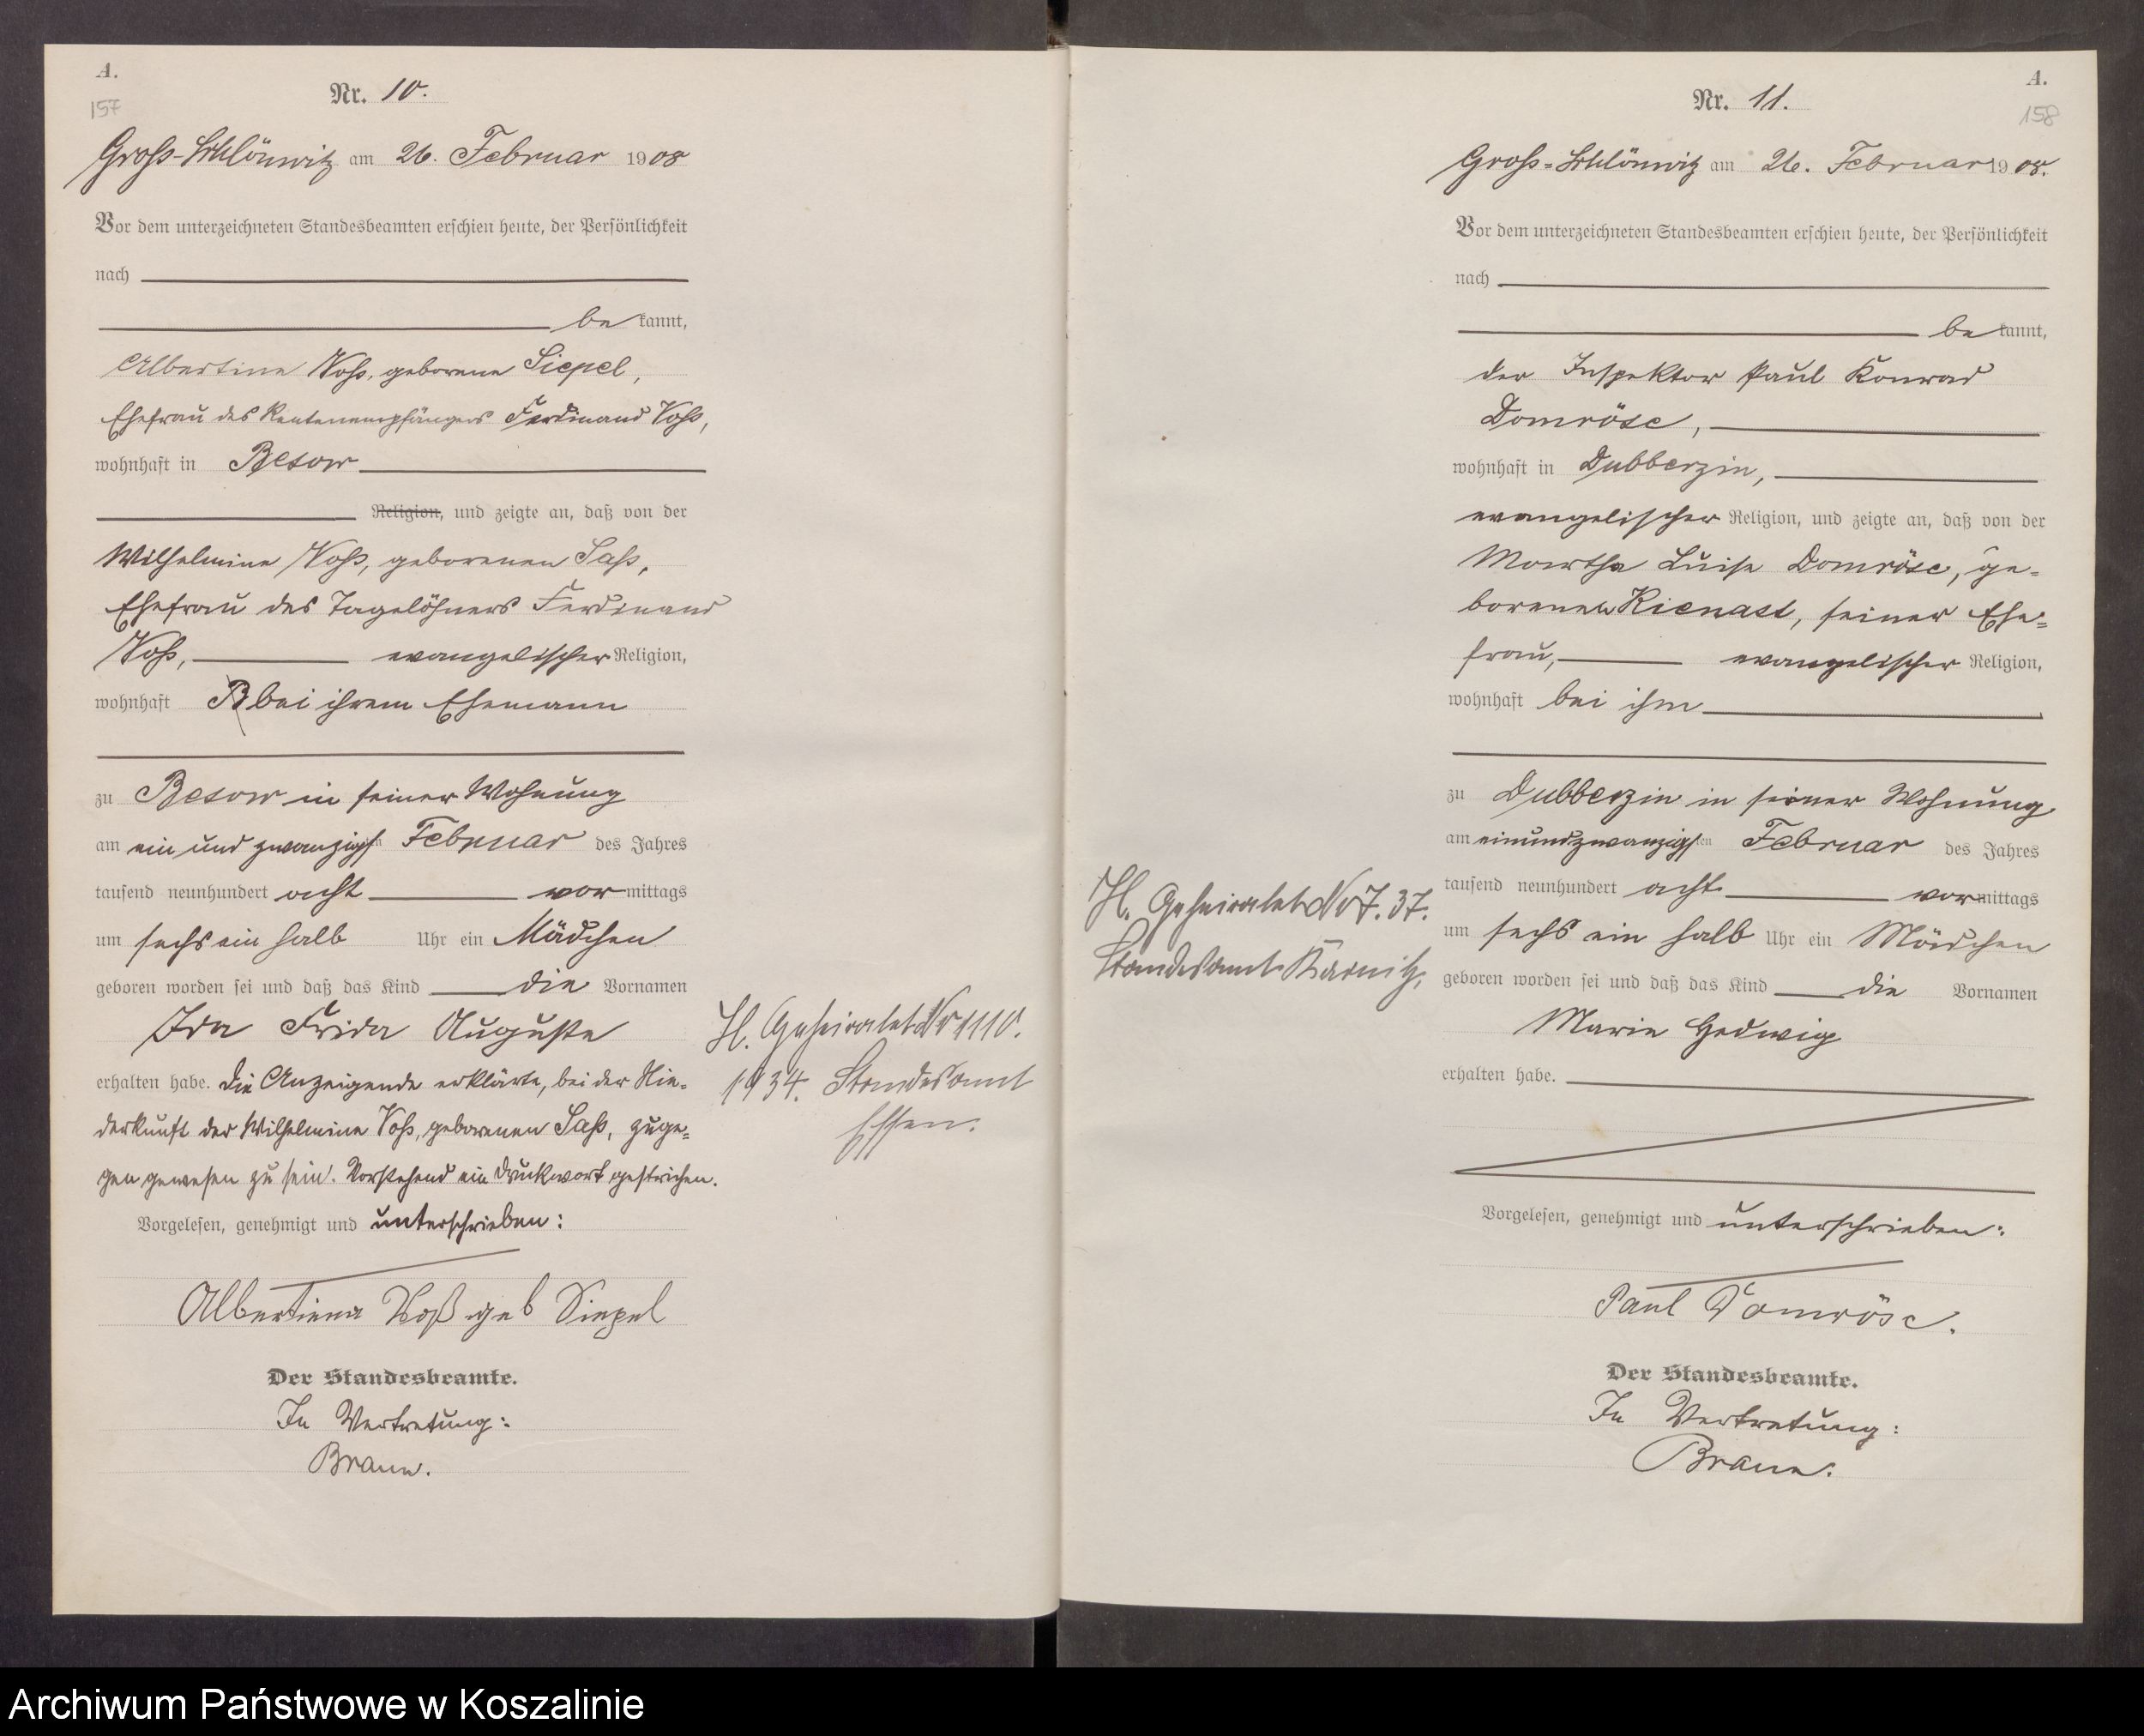 A.
157
Nr. 10.
Groß-Schlönwitz am 26. Februar 1908
Vor dem unterzeichneten Standesbeamten erschien heute, der Persönlichkeit
nach
be kannt,
Albertine Voß, geborene Siepel,
Ehefrau des Rentenempfängers Ferdinand Voß,
wohnhaft in Besow
Religion, und zeigte an, daß von der
Wilhelmine Voß, geborenen Saß,
Ehefrau des Tagelöhners Ferdinand
Voß, evangelischer Religion,
wohnhaft B bei ihrem Ehemann
zu Besow in seiner Wohnung
am ein und zwanzigsten Februar des Jahres
tausend neunhundert acht vor mittags
um sechs ein halb Uhr ein Mädchen
geboren worden sei und daß das Kind die Vornamen
Ida Frida Auguste
erhalten habe. Die Anzeigende erklärte, bei der Nie-
derkunft der Wilhelmine Voß, geborenen Saß, zuge-
gen gewesen zu sein. Vorstehend ein Druckwort gestrichen.
Vorgelesen, genehmigt und unterschrieben:
Albertiena Voß geb Siepel
Der Standesbeamte.
In Vertretung:
Braun.
H. Geheiratet Nr 1110.
1934. Standesamt
Essen.
A.
158
Nr. 11.
Groß-Schlönwitz am 26. Februar 1908.
Vor dem unterzeichneten Standesbeamten erschien heute, der Persönlichkeit
nach
be kannt,
der Inspektor Paul Konrad
Domröse,
wohnhaft in Dubberzin,
evangelischer Religion, und zeigte an, daß von der
Martha Luise Domröse, ge-
borenen Kienast, seiner Ehe-
frau, evangelischer Religion,
wohnhaft bei ihm
zu Dubberzin in seiner Wohnung
am einundzwanzigsten Februar des Jahres
tausend neunhundert acht vor mittags
um sechs ein halb Uhr ein Mädchen
geboren worden sei und daß das Kind die Vornamen
Marie Hedwig
erhalten habe.
Vorgelesen, genehmigt und unterschrieben:
Paul Domröse.
Der Standesbeamte.
In Vertretung:
Braun.
H. Geheiratet Nr 7. 37.
Standesamt Karnitz,
Archiwum Państwowe w Koszalinie